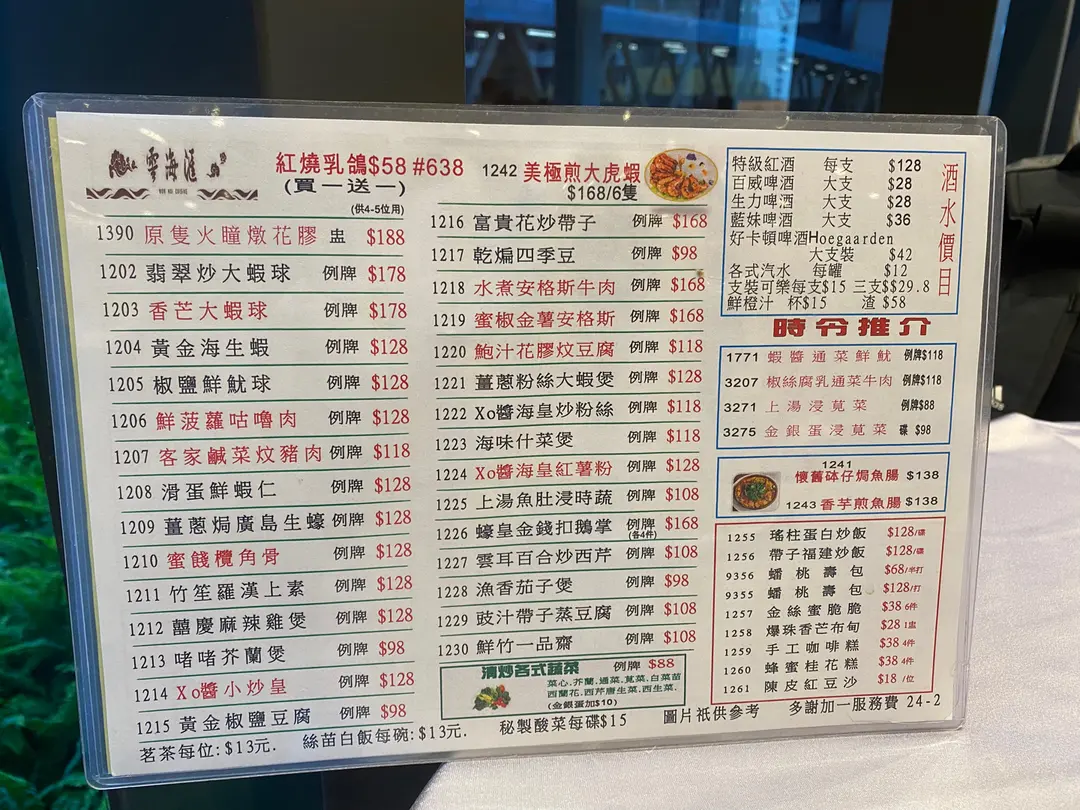 雲海滙
紅燒乳鴿$58 #638
(買一送一)
(供4-5位用)
1390 原隻火瞳燉花膠 盅 $188
1202 翡翠炒大蝦球 例牌 $178
1203 香芒大蝦球 例牌 $178
1204 黃金海生蝦 例牌 $128
1205 椒鹽鮮魷球 例牌 $128
1206 鮮菠蘿咕嚕肉 例牌 $128
1207 客家鹹菜炆豬肉 例牌 $118
1208 滑蛋鮮蝦仁 例牌 $128
1209 薑蔥焗廣島生蠔 例牌 $128
1210 蜜餞欖角骨 例牌 $128
1211 竹笙羅漢上素 例牌 $128
1212 囍慶麻辣雞煲 例牌 $128
1213 啫啫芥蘭煲 例牌 $98
1214 Xo醬小炒皇 例牌 $128
1215 黃金椒鹽豆腐 例牌 $98
1242 美極煎大虎蝦
$168/6隻
1216 富貴花炒帶子 例牌 $168
1217 乾煸四季豆 例牌 $98
1218 水煮安格斯牛肉 例牌 $168
1219 蜜椒金薯安格斯 例牌 $168
1220 鮑汁花膠炆豆腐 例牌 $118
1221 薑蔥粉絲大蝦煲 例牌 $128
1222 Xo醬海皇炒粉絲 例牌 $118
1223 海味什菜煲 例牌 $118
1224 Xo醬海皇紅薯粉 例牌 $128
1225 上湯魚肚浸時蔬 例牌 $108
1226 蠔皇金錢扣鵝掌 例牌 $168
(各4件)
1227 雲耳百合炒西芹 例牌 $108
1228 漁香茄子煲 例牌 $98
1229 豉汁帶子蒸豆腐 例牌 $108
1230 鮮竹一品齋 例牌 $108
清炒各式蔬菜 例牌 $88
菜心.芥蘭.通菜.莧菜.白菜苗
西蘭花.西芹唐生菜.西生菜.
(金銀蛋加$10)
酒水價目
特級紅酒 每支 $128
百威啤酒 大支 $28
生力啤酒 大支 $28
藍妹啤酒 大支 $36
好卡頓啤酒Hoegaarden
大支裝 $42
各式汽水 每罐 $12
支裝可樂每支$15 三支$$29.8
鮮橙汁 杯$15 渣 $58
時令推介
1771 蝦醬通菜鮮魷 例牌$118
3207 椒絲腐乳通菜牛肉 例牌$118
3271 上湯浸莧菜 例牌$88
3275 金銀蛋浸莧菜 碟 $98
1241
懷舊砵仔焗魚腸 $138
1243 香芋煎魚腸 $138
1255 瑤柱蛋白炒飯 $128/碟
1256 帶子福建炒飯 $128/碟
9356 蟠桃壽包 $68/半打
9355 蟠桃壽包 $128/打
1257 金絲蜜脆脆 $38 6件
1258 爆珠香芒布甸 $28 1盅
1259 手工咖啡糕 $38 4件
1260 蜂蜜桂花糕 $38 4件
1261 陳皮紅豆沙 $18 /位
茗茶每位:$13元. 絲苗白飯每碗:$13元. 秘製酸菜每碟$15 圖片祇供參考 多謝加一服務費 24-2